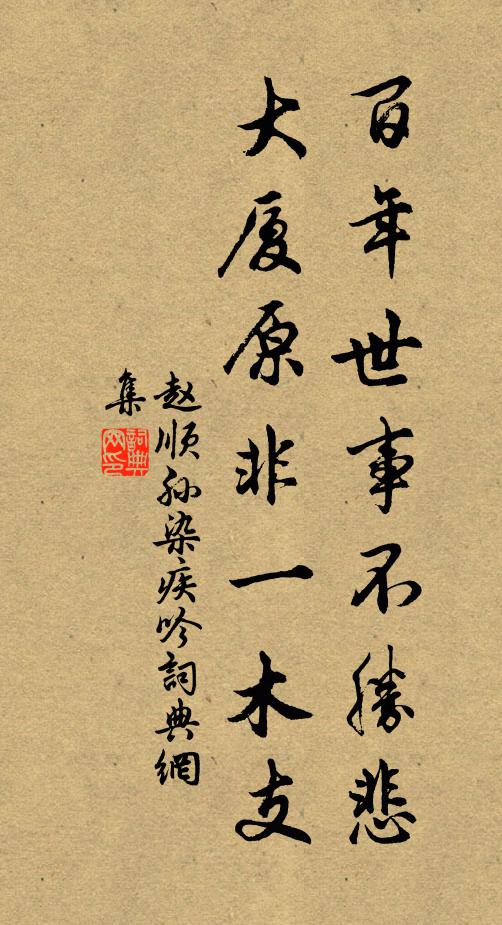 百年世事不勝悲
大厦原非一木支
赵順孙染疾吟詞典網
集
詞典
网印